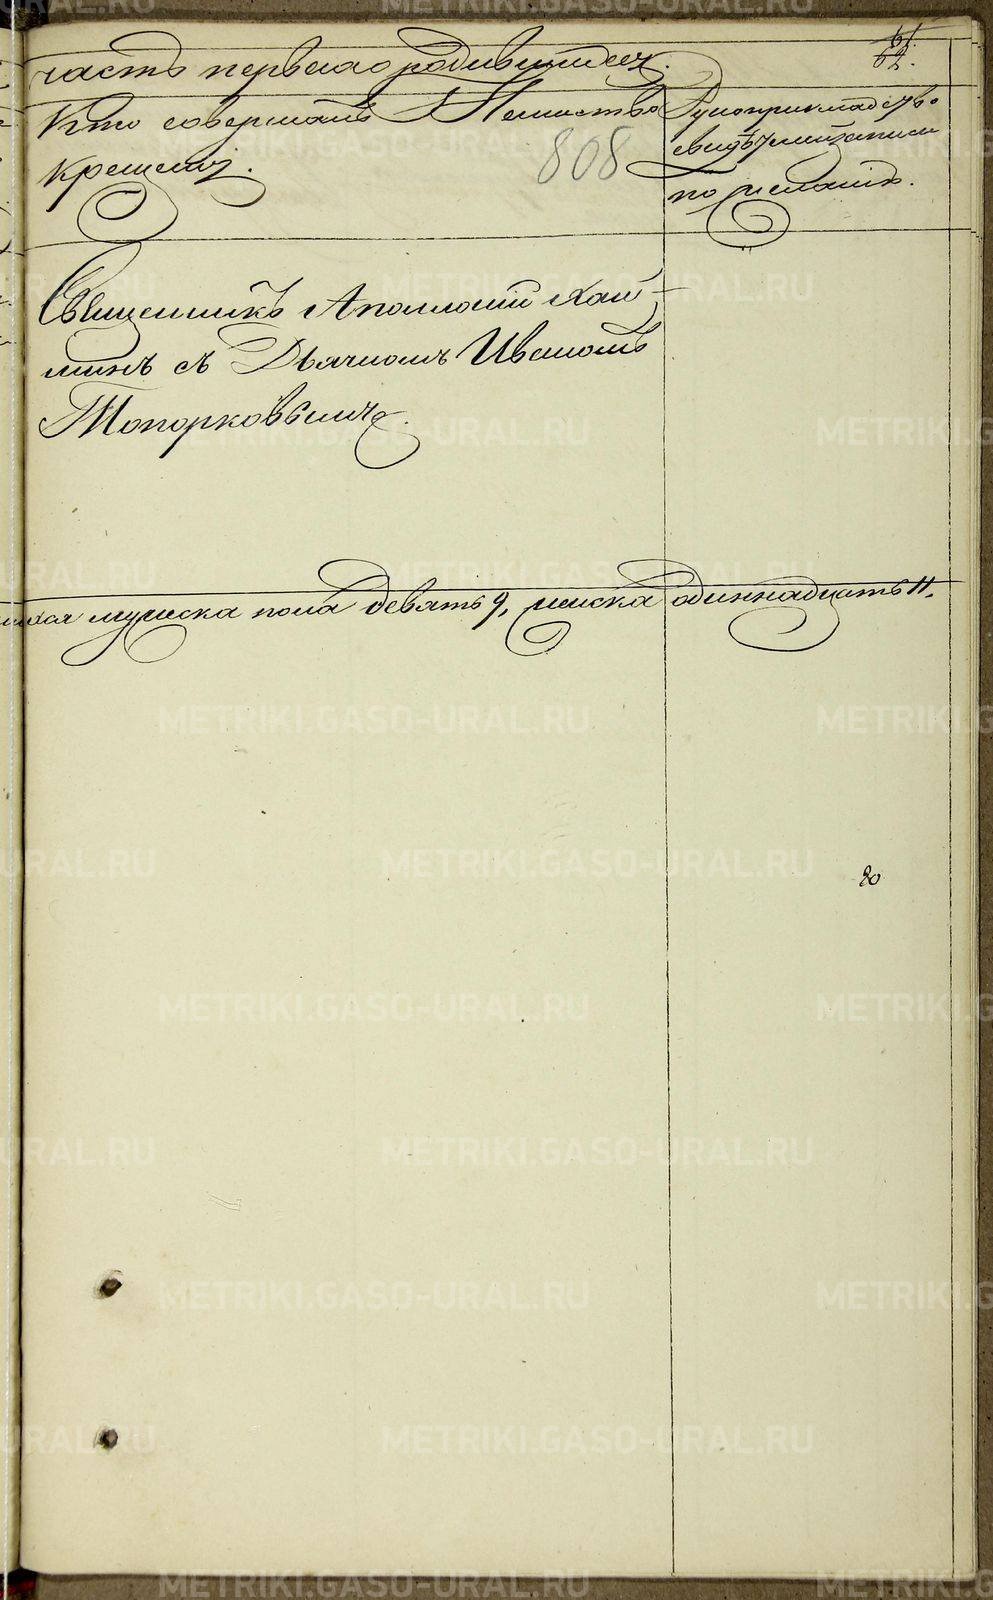 61.
62.
часть первая о родившихся.
Кто совершалъ Таинство
крещенія.
808
Рукоприкладство
свидѣтелей записи
по желанію.
Священникъ Аполлоній Хлы-
нинъ съ Дьячкомъ Иваномъ
Топорковымъ.
мужеска пола девять 9, женска одиннадцать 11.
20
METRIKI.GASO-URAL.RU